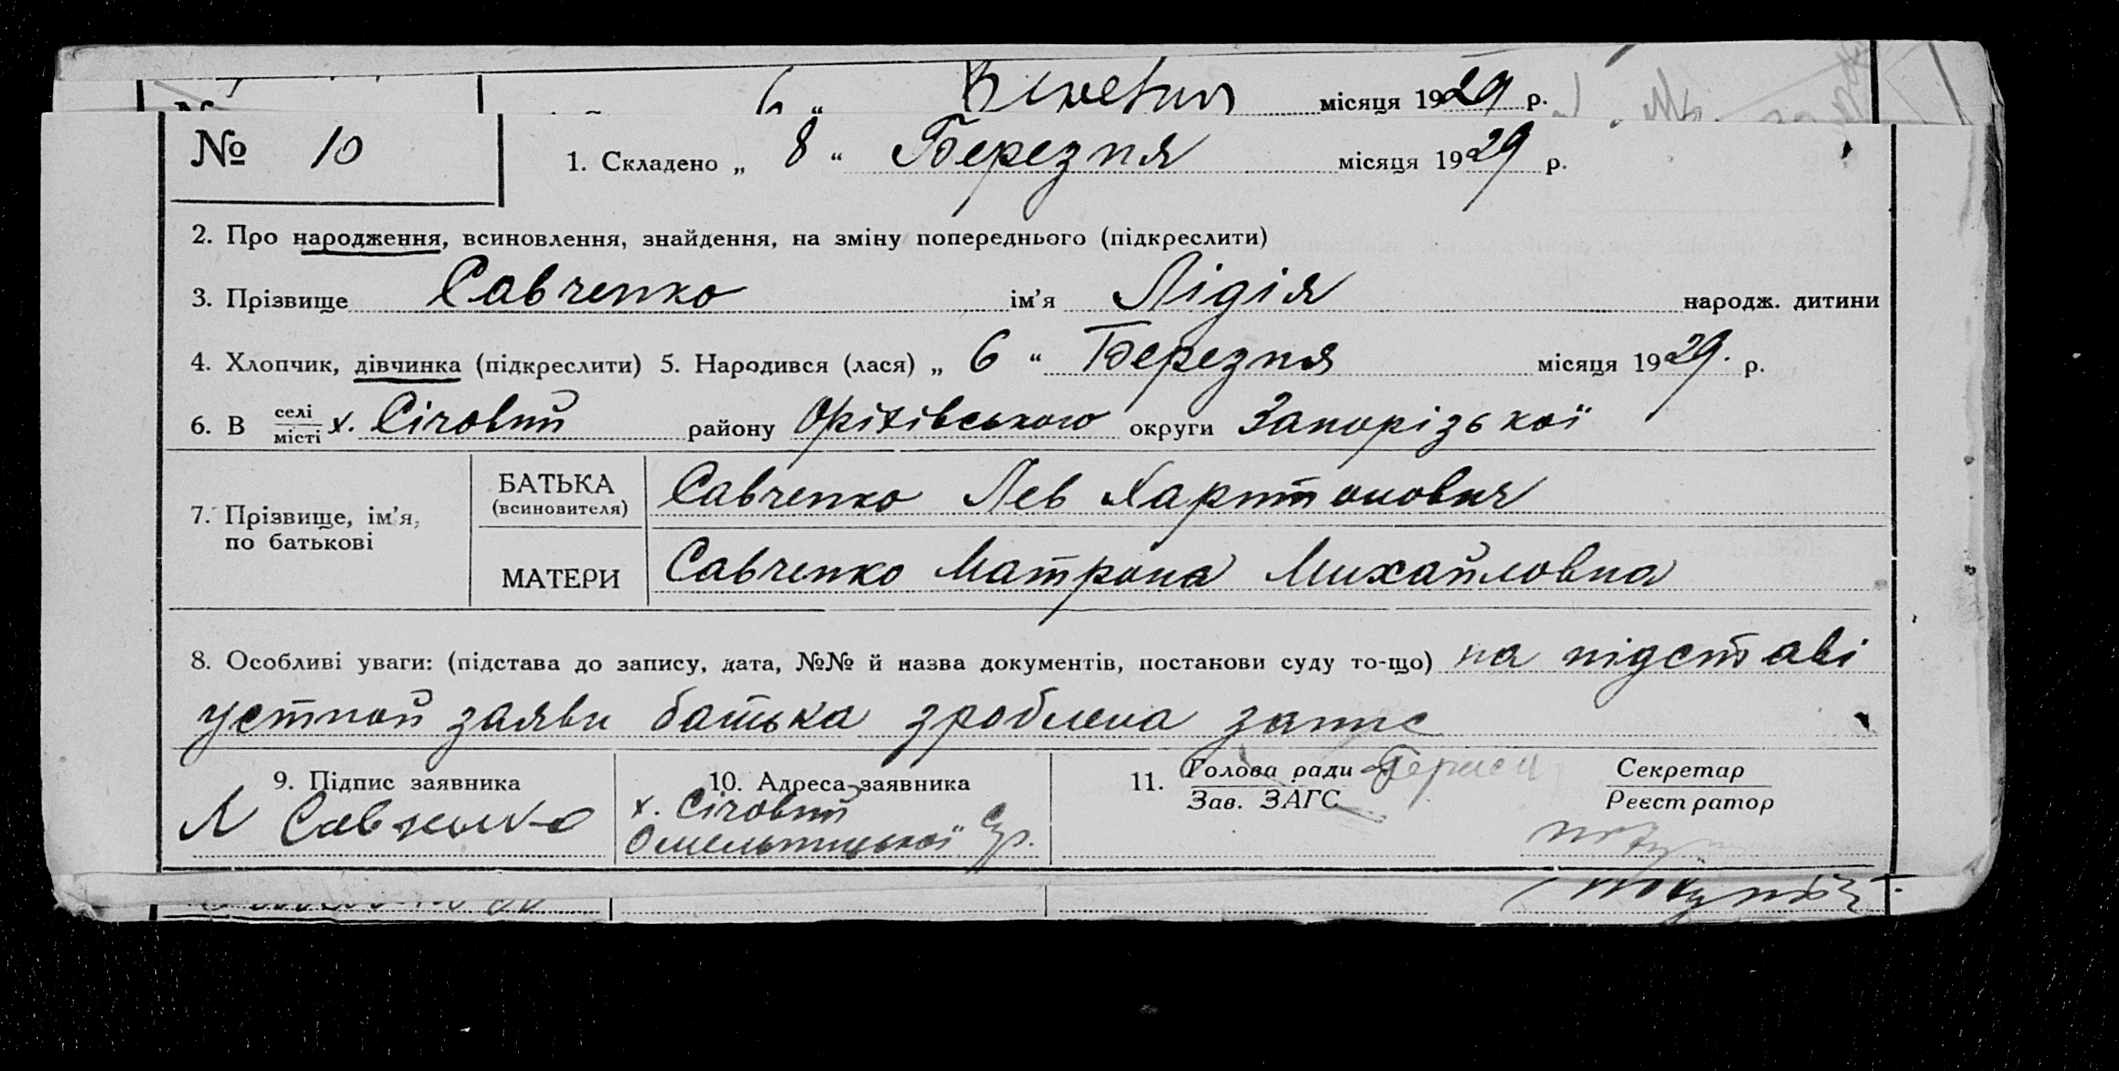 місяця 1929 р.
№ 10
1. Складено „ 8 “ Березня місяця 1929 р.
2. Про народження, всиновлення, знайдення, на зміну попереднього (підкреслити)
3. Прізвище Савченко ім’я Лідія народж. дитини
4. Хлопчик, дівчинка (підкреслити) 5. Народився (лася) „ 6 “ Березня місяця 1929. р.
6. В селі місті х. Січовий району Оріхівського округи Запорізької
7. Прізвище, ім’я, по батькові
БАТЬКА (всиновителя) Савченко Лев Харитонович
МАТЕРИ Савченко Матрона Михайловна
8. Особливі уваги: (підстава до запису, дата, №№ й назва документів, постанови суду то-що) на підставі
устной заяви батька зроблена запис
9. Підпис заявника
Л Савченко
10. Адреса заявника
х. Січовий
Омельницької с/р.
11. Голова ради
Зав. ЗАГС
Секретар
Реєстратор